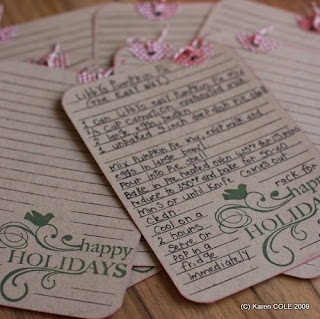 Libbys Pumpkin Pie
(the Easy Way)
1 can Libbys easy Pumpkin Pie mix
2/3 cup carnation evaporated milk
2 large eggs, beaten
1 unbaked 9 inch deep dish Pie shell
Mix Pumpkin Pie mix, evap. milk and
eggs in large bowl
Pour into Pie shell
Bake in Pre heated oven 425°F for 15 mins
reduce to 350°F and bake for 50-60
mins or until knife comes out
clean.
Cool on a rack for
2 hours
Serve or
Pop in a
fridge
immediately
happy
HOLIDAYS
happy
HOLIDAYS
(C) Karen COLE 2009